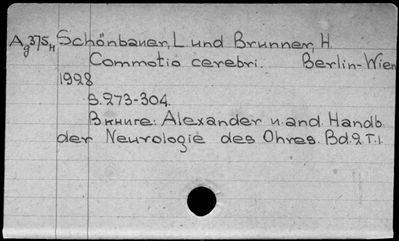 Ag 375, H Schönbauer, L. und Brunner, H.
Commotio cerebri. Berlin-Wien
1928
S. 273-304.
Вкниге: Alexander u. and. Handb.
der Neurologie des Ohres. Bd. 2 T. 1.